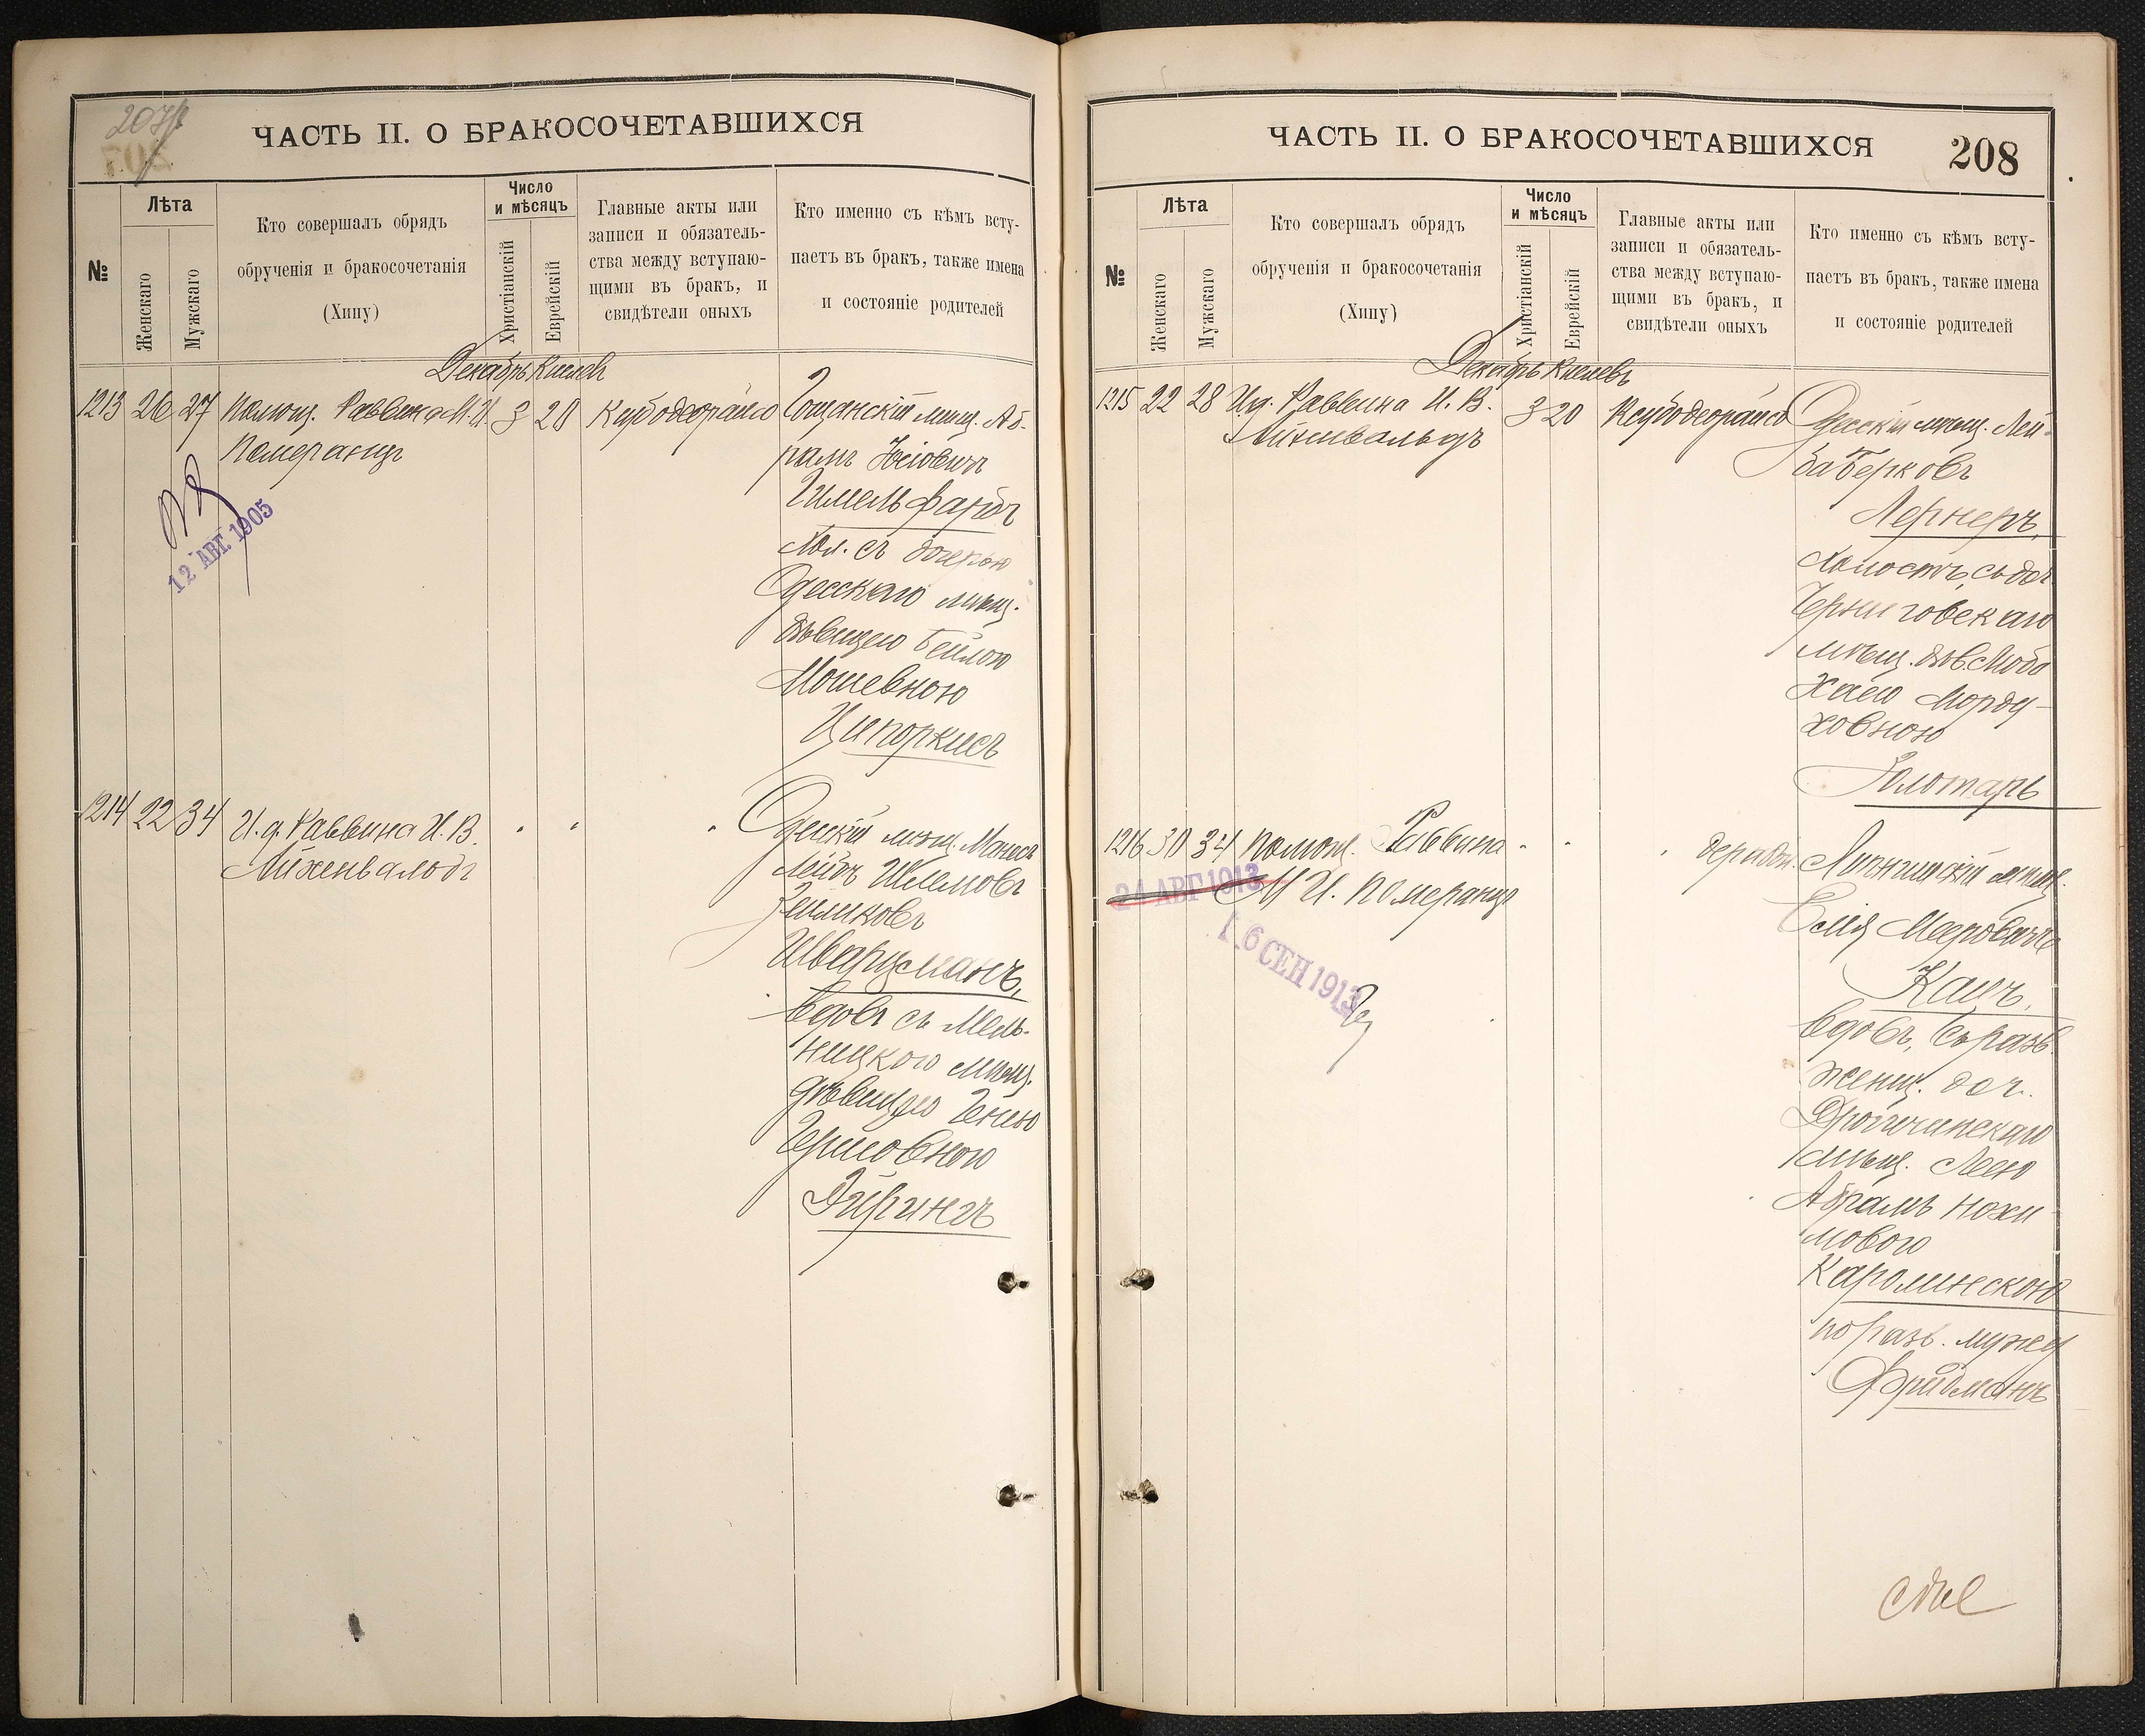 207
ЧАСТЬ II. О БРАКОСОЧЕТАВШИХСЯ
№
Лѣта
Женскаго
Мужскаго
Кто совершалъ обрядъ
обрученія и бракосочетанія
(Хипу)
Число
и мѣсяцъ
Христіанскій
Еврейскій
Главные акты или
записи и обязатель-
ства между вступаю-
щими въ бракъ, и
свидѣтели оныхъ
Кто именно съ кѣмъ всту-
паетъ въ бракъ, также имена
и состояніе родителей
Декабрь Кислевъ
1213 26 27 Помощ. Раввина М. И. 3 20
Померанцъ
12 АВГ. 1905
Гощанскій мѣщ. Аб-
рамъ
Гимельфарбъ
хол. съ дочерью
Одесскаго мѣщ.
дѣвицею Бейлою
Мошевною
Ципоркисъ
1214 22 34 И. д. Раввина И. В. " " "
Айхенвальдъ
Одесскій мѣщ. Манесъ
Лейбъ Шлемовъ
Зейликовъ
Шварцманъ,
вдовъ съ Мель-
ницкого мѣщ.
дѣвицею Генею
Гершовною
Дирингъ
ЧАСТЬ II. О БРАКОСОЧЕТАВШИХСЯ
208
№
Лѣта
Женскаго
Мужскаго
Кто совершалъ обрядъ
обрученія и бракосочетанія
(Хипу)
Число
и мѣсяцъ
Христіанскій
Еврейскій
Главные акты или
записи и обязатель-
ства между вступаю-
щими въ бракъ, и
свидѣтели оныхъ
Кто именно съ кѣмъ всту-
паетъ въ бракъ, также имена
и состояніе родителей
Декабрь Кислевъ
1215 22 28 Ид. Раввина И. В. 3 20
Айхенвальдъ
Одесскій мѣщ. Лей-
ба Берковъ
Лернеръ,
холостъ, съ доч.
Черниговскаго
мѣщ. дѣв. Люба
Хаею Морду-
ховною
Золотарь
1216 30 34 Помощ. Раввина " " "
М. И. Померанцъ
24 АВГ 1913
16 СЕН 1913
мѣщ.
Мееровичъ
Кацъ,
вдовъ, съ разв.
женщ. доч.
Дрогичинскаго
мѣщ. Леею
Абрамъ Нохи
мовою
Каролинскою
по разв. мужу
Фридманъ